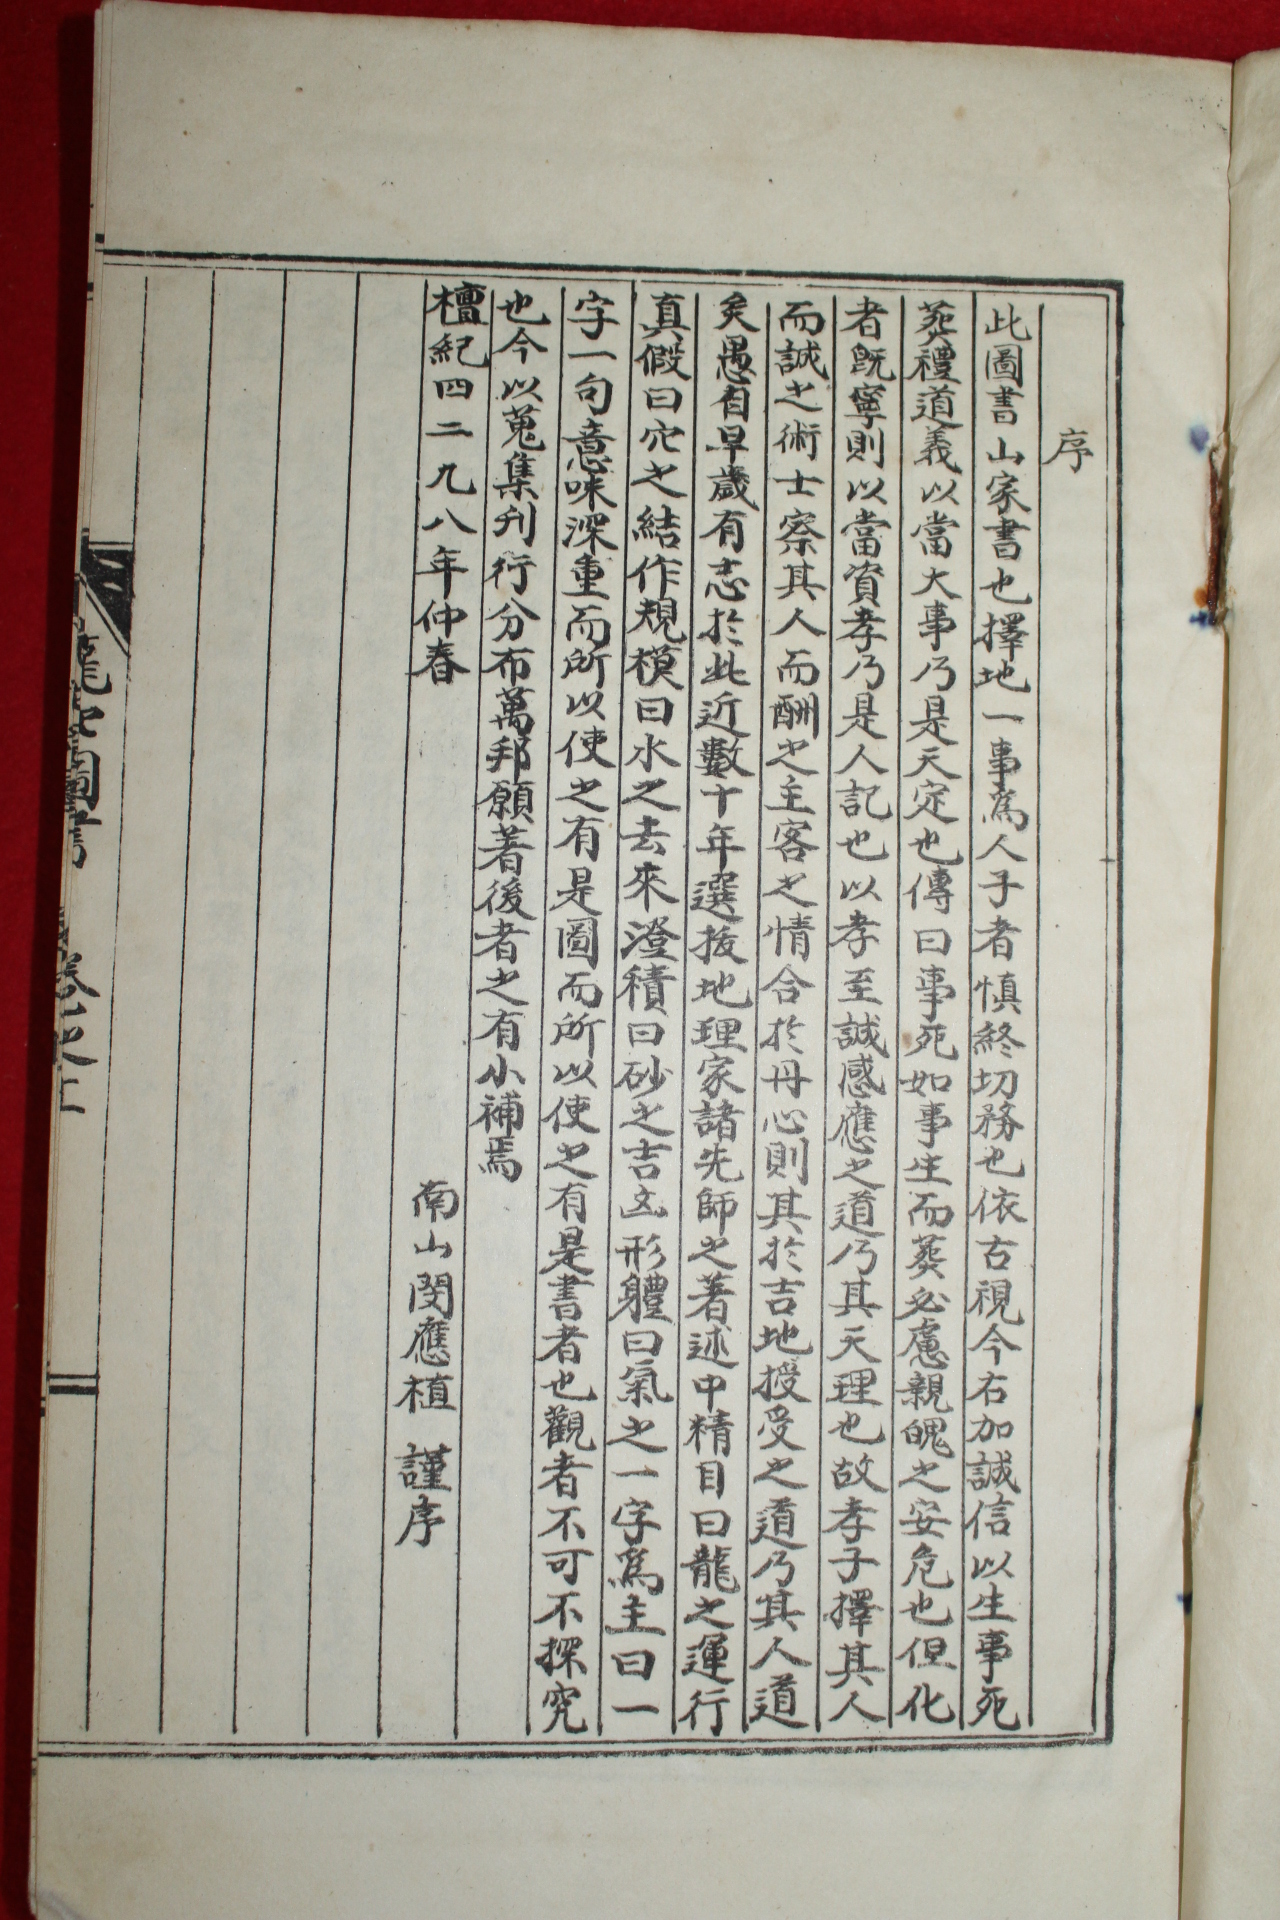 序
此圖書山家書也擇地一事爲人子者愼終切務也依古視今右加誠信以生事死
葬禮道義以當大事乃是天定也傳曰事死如事生而葬必慮親魄之安危也但化
者旣寧則以當資孝乃是人記也以孝至誠感應之道乃其天理也故孝子擇其人
而誠之術士察其人而酬之主客之情合於丹心則其於吉地授受之道乃其人道
矣愚自早歲有志於此近數十年選拔地理家諸先師之著述中精目曰龍之運行
真假曰穴之結作規模曰水之去來澄積曰砂之吉凶形軆曰氣之一字爲主曰一
字一句意味深重而所以使之有是圖而所以使之有是書者也觀者不可不探究
也今以蒐集刊行分布萬邦願著後者之有小補焉
檀紀四二九八年仲春
南山閔應植 謹序
卷之上